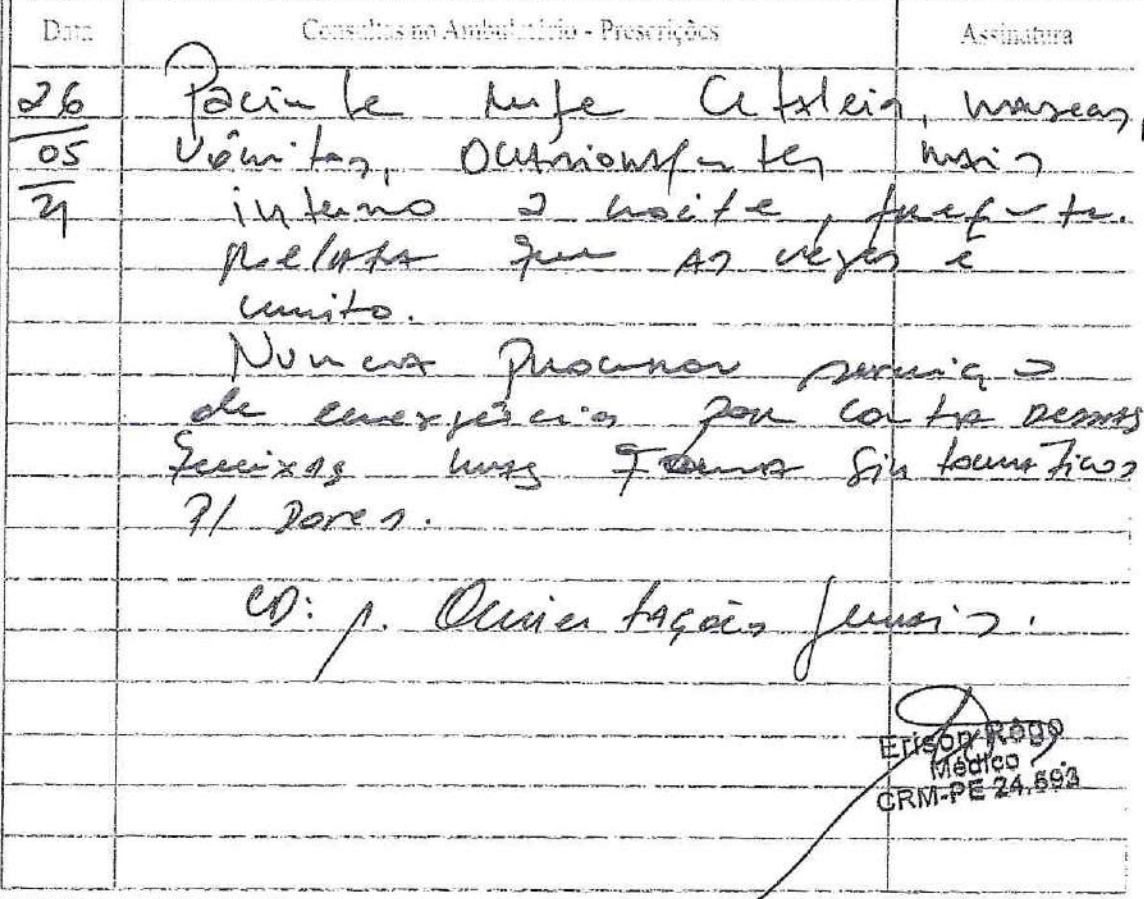 Data Consultas no Ambulatório - Prescrições Assinatura
26 Paciente refe Cefaleia, nauseas,
05 Vômitos, Ocasionalmentes mais
21 intenso a noite,
relata que as vezes é
muito.
Nunca procurou serviço
de emergência por conta dessas
queixas mas toma sintomáticos
P/ Dores.
CD: 1. Orientações gerais.
Erison Rêgo
Médico
CRM-PE 24.693